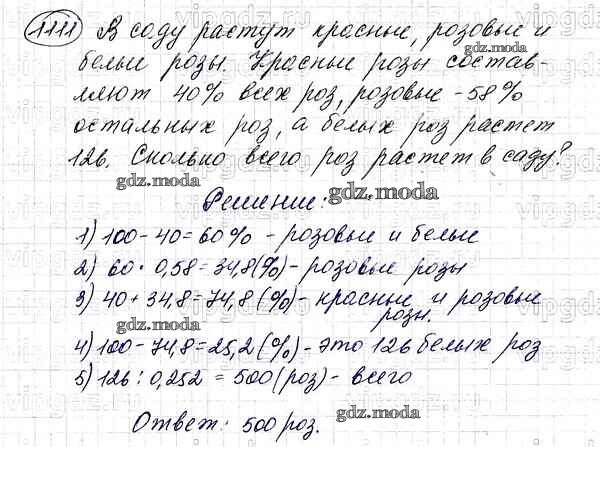 1111 В саду растут красные, розовые и
белые розы. Красные розы состав-
ляют 40% всех роз, розовые - 58%
остальных роз, а белых роз растет
126. Сколько всего роз растет в саду?
gdz.moda
gdz.moda
Решение:
1) 100 - 40 = 60% - розовые и белые
2) 60 · 0,58 = 34,8(%) - розовые розы
3) 40 + 34,8 = 74,8 (%) - красные и розовые
розы.
gdz.moda
gdz.moda
4) 100 - 74,8 = 25,2 (%) - это 126 белых роз
5) 126 : 0,252 = 500 (роз) - всего
gdz.moda
Ответ: 500 роз.
gdz.moda